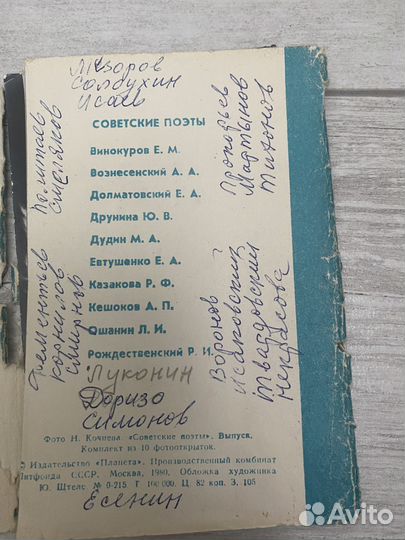 Мезоров
Солоухин
Исаев
Прокофьев
Мартынов
Тихонов
СОВЕТСКИЕ ПОЭТЫ
Винокуров Е. М.
Вознесенский А. А.
Долматовский Е. А.
Друнина Ю. В.
Дудин М. А.
Евтушенко Е. А.
Казакова Р. Ф.
Кешоков А. П.
Ошанин Л. И.
Рождественский Р. И.
Дементьев
Корнилов
Смирнов
Воронов
Исаковский
Твардовский
Некрасова
Луконин
Доризо
Симонов
Фото Н. Кочнева. «Советские поэты». Выпуск.
Комплект из 10 фотооткрыток.
© Издательство «Планета». Производственный комбинат
Литфонда СССР, Москва, 1980. Обложка художника
Ю. Штеле № 6-215 Т 100 000. Ц 82 коп З. 105
Есенин
Avito